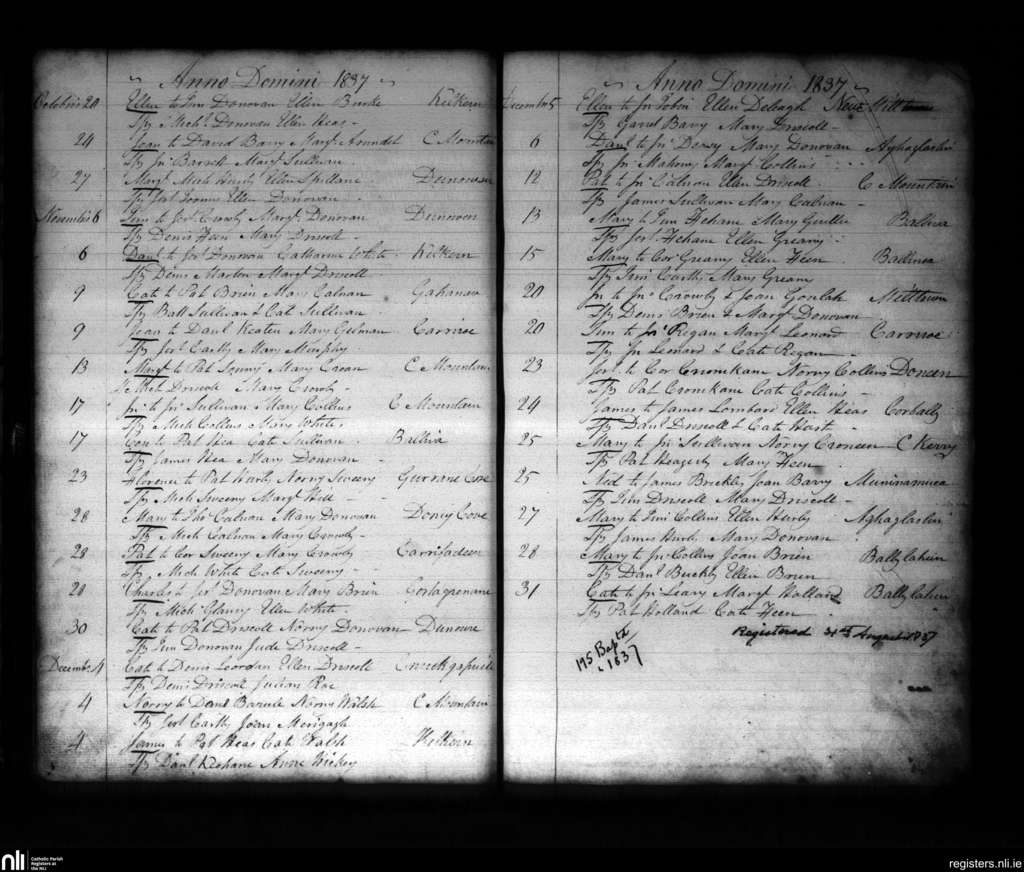 Anno Domini 1837
Octobris 20 Ellen to Tim Donovan Ellen Burke Kilkern
Sps Michl Donovan Ellen Heas
24 Joan to David Barry Margt Arundel C Mountain
Sps Jno Barrett Margt Sullivan
27 Margt Mich Hurly Ellen Spillane Dunowen
Ellen Donovan
Novembris 6 Tim to Jerh Crowly Margt Donovan Dunowen
Sps Denis Heen Mary Driscoll
6 Danl to Jerh Donovan Catharine White Kilkern
Sps Denis Marten Margt Driscoll
9 Cate to Pat Brien Mary Calnan Gahanive
Sps Batt Sullivan & Cat Sullivan
9 Joan to Danl Keaten Mary Calnan Carriroe
Sps Jerh Carthy Mary Murphy
13 Margt to Pat Mary C Mountain
Michl Driscole Mary Crowly
17 Jno to Jno Sullivan Mary Collins C Mountain
Sps Mich Collins Mary White
17 Con to Pat Hea Cate Sullivan Balliva
Sps James Hea Mary Donovan
23 Florence to Pat Hurly Norry Sweeny Gurrane
Sps Mich Sweeny Margt
28 Mary to Thos Calnan Mary Donovan Doney Cove
Sps Mich Calnan Mary Crowly
28 Pat to Cor Sweeny Mary Crowly
Sps Mich White Cate Sweeny
28 Charles to Jerh Donovan Mary Brien
Sps Mich Glancy Ellen White
30 Cate to Pat Driscoll Norry Donovan Dunoure
Sps Tim Donovan Jude Driscoll
Decembr 4 Cate to Denis Loordan Ellen Driscole
Sps Denis Driscole Julian Roe
4 Norry to Danl Norry Walsh C Mountain
Sps Jerh Carthy Joan
4 James to Pat Heas Cate Walsh Kilkern
Sps Danl Keohane Anne Hickey
Anno Domini 1837
Decembris 5 Ellen to Jno Tobin Ellen Millt
Sps Garret Barry Mary Driscoll
6 Danl to Jno Mary Donovan Aghaglaslin
Sps Jno Mahony Margt Collins
12 Pat to Jno Calnan Ellen Driscoll C Mountain
Sps James Sullivan Mary Calnan
13 Mary to Tim Hehane & Mary Balliva
Sps Jerh Hehane Ellen Greany
15 Mary to Cor Greany Ellen Heen Ballinea
Sps Timi Carthy Mary Greany
20 Jn to Jno Crowly & Joan Milltown
Sps Denis Brien & Margt Donovan
20 Tim to Jno Regan Margt Leonard Carriroe
Sps Jno Leonard & Cate Regan
23 Jerh to Cor Cronekane Norry Collins Doneen
Sps Pat Cronekane Cate Collins
24 James to James Lombard Ellen Heas Corbally
Sps Danl Driscoll & Cate Hart
25 Mary to Jno Sullivan Norry Croneen C Kerry
Sps Pat Heagerty Mary Heen
25 Ned to James Buckley Joan Barry
Sps Tim Driscoll Mary Driscoll
27 Mary to Timi Collins Ellen Hurly Aghaglaslin
Sps James Hurly Mary Donovan
28 Mary to Jno Collins Joan Brien Ballylahein
Sps Danl Buckly Ellen Brien
31 Cate to Jno Leary Margt Holland Ballylahein
Sps Pat Holland Cate Heen
Registered 31st August 1837
175 Baptz
1837
nli
Catholic Parish
Registers at
the NLI
registers.nli.ie